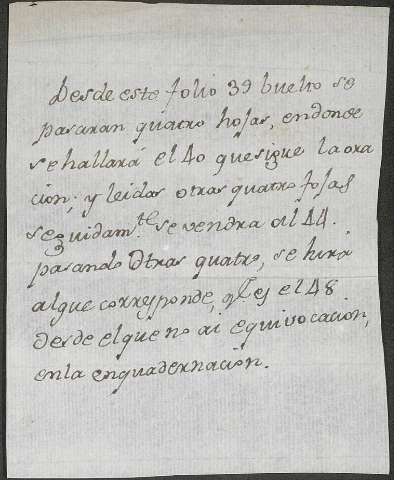 Desde este folio 39 buelto se
pasaran quatro hojas, endonde
se hallará el 40 que sigue la ora
cion; y leidas otras quatro fojas
seguidam.te se vendra al 44.
pasando Otras quatro, se hirá
al que corresponde, q.e es el 48
desde el que no ai equivocacion,
en la enquadernacion.